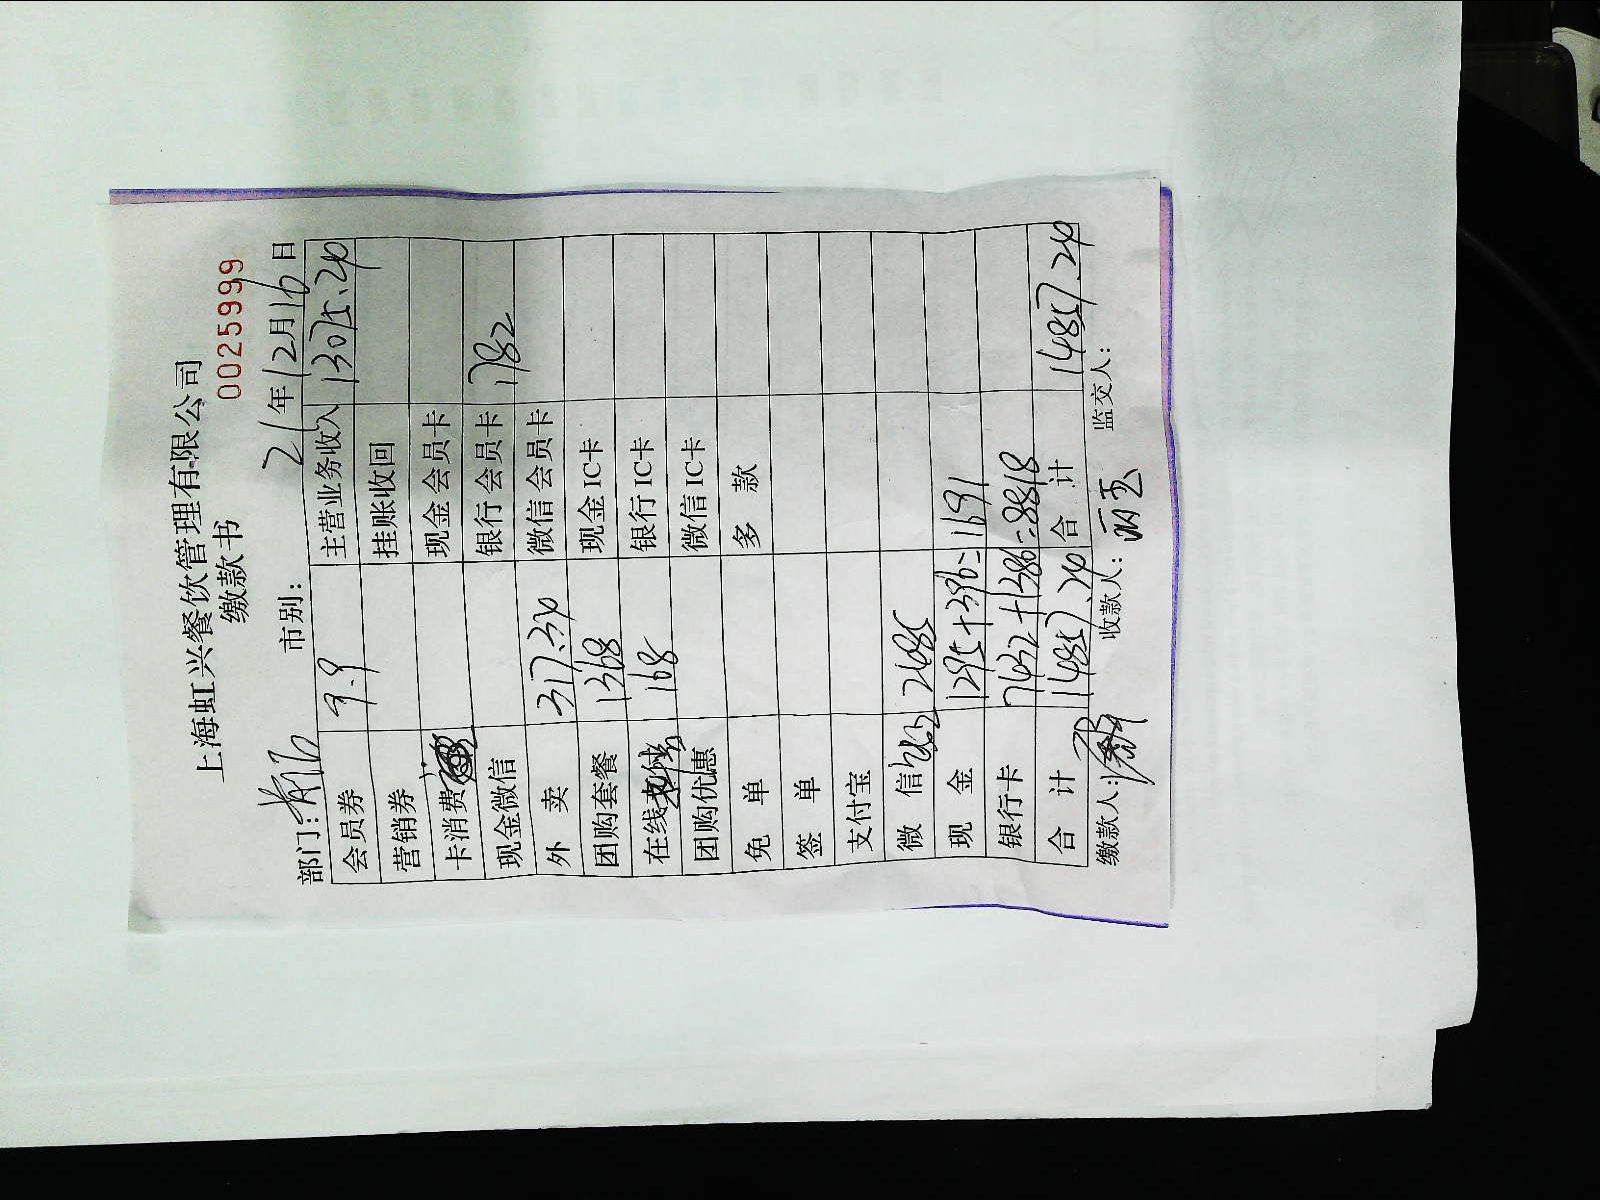 上海虹兴餐饮管理有限公司
缴款书 0025999
部门: 市别: 21年12月16日
会员券 9.9 主营业务收入 13075.24
营销券 挂账收回
卡消费 现金会员卡
现金微信 银行会员卡 1782
外 卖 317.34 微信会员卡
团购套餐 1368 现金IC卡
在线 168 银行IC卡
团购优惠 微信IC卡
免 单 多 款
签 单
支付宝
微 信 2685
现 金 1295+396=1691
银行卡 7432+1386=8818
合 计 14857.24 合 计 14857.24
缴款人: 收款人: 监交人: